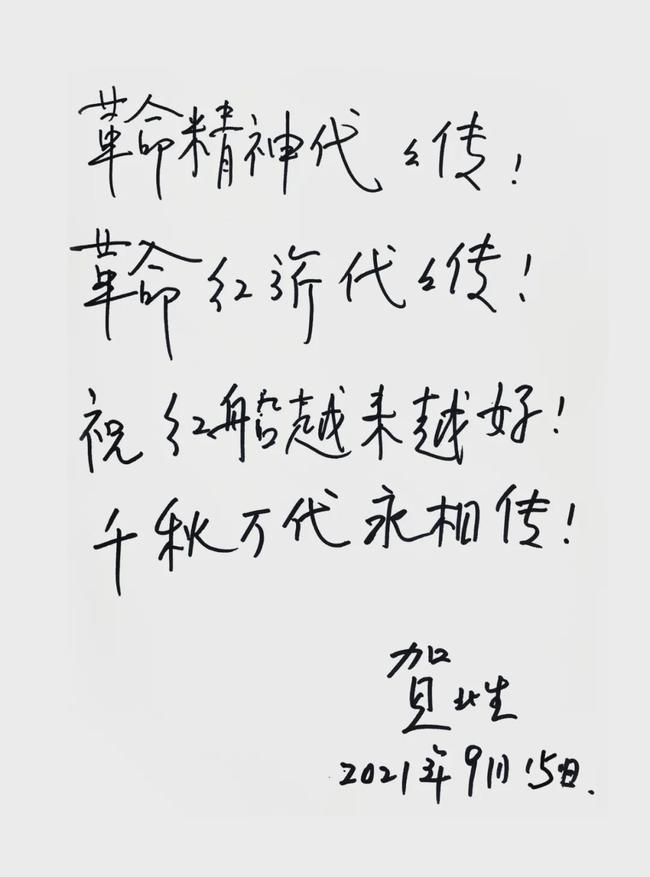 革命精神代々传！
革命红旂代々传！
祝红船越来越好！
千秋万代永相传！
贺北生
2021年9月15日.